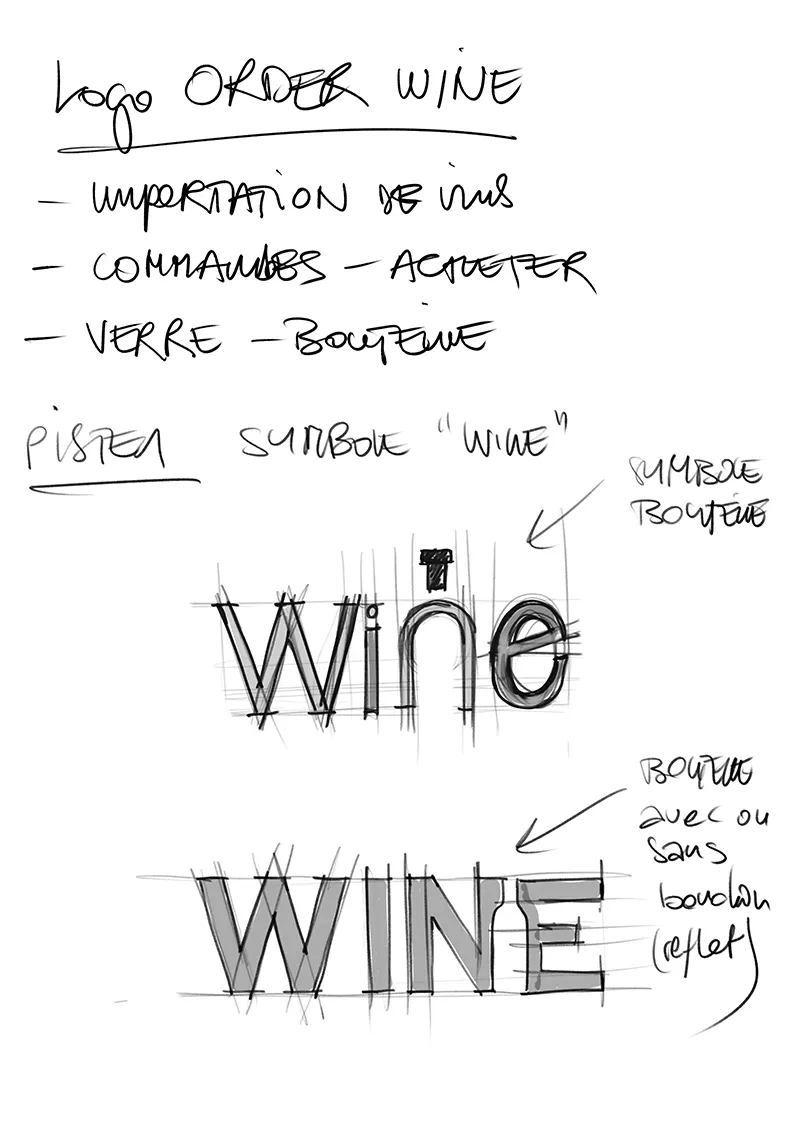 Logo ORDER WINE
— importation de vins
— COMMANDES — ACHETER
— VERRE — Bouteille
PISTE 1 SYMBOLE "WINE"
SYMBOLE
BOUTEILLE
Wine
BOUTEILLE
avec ou
sans
bouchon
(reflet)
WINE